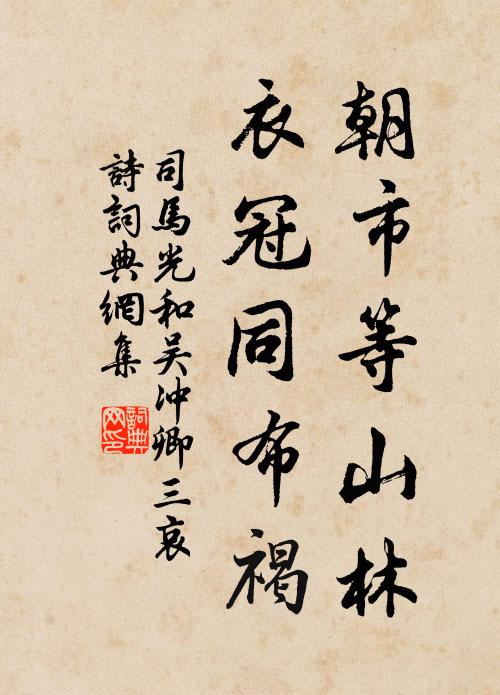 朝市等山林
衣冠同布褐
司馬光和吴冲卿三哀
詩詞典網集
詞典
网印